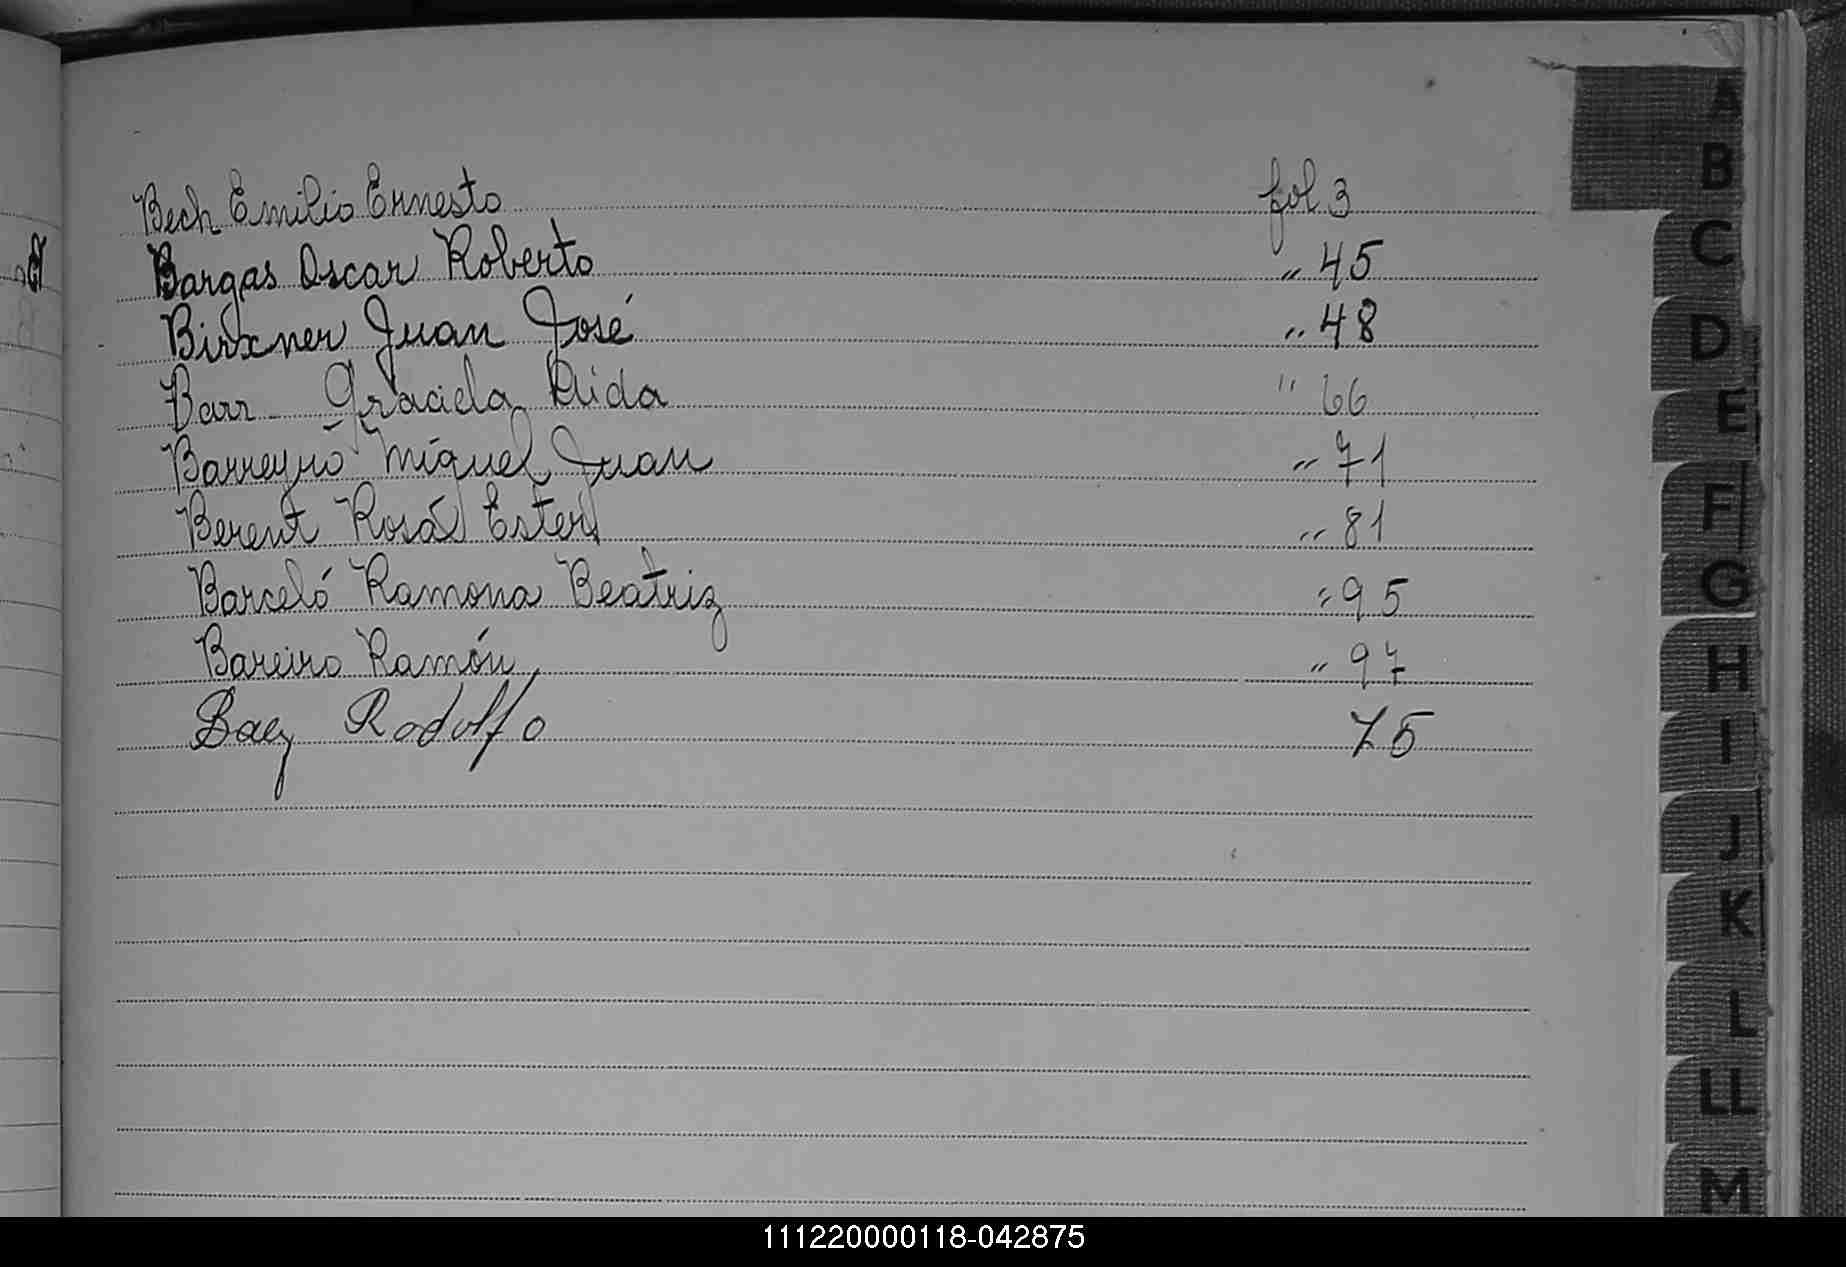 Bech Emilio Ernesto fol 3
Bargas Oscar Roberto " 45
Birxner Juan José " 48
Barr Graciela Aida " 66
Barreyró Miguel Juan " 71
Berent Rosa Ester " 81
Barceló Ramona Beatriz " 95
Bareiro Ramón " 97
Baez Rodolfo 75
A
B
C
D
E
F
G
H
I
J
K
L
LL
M
111220000118-042875